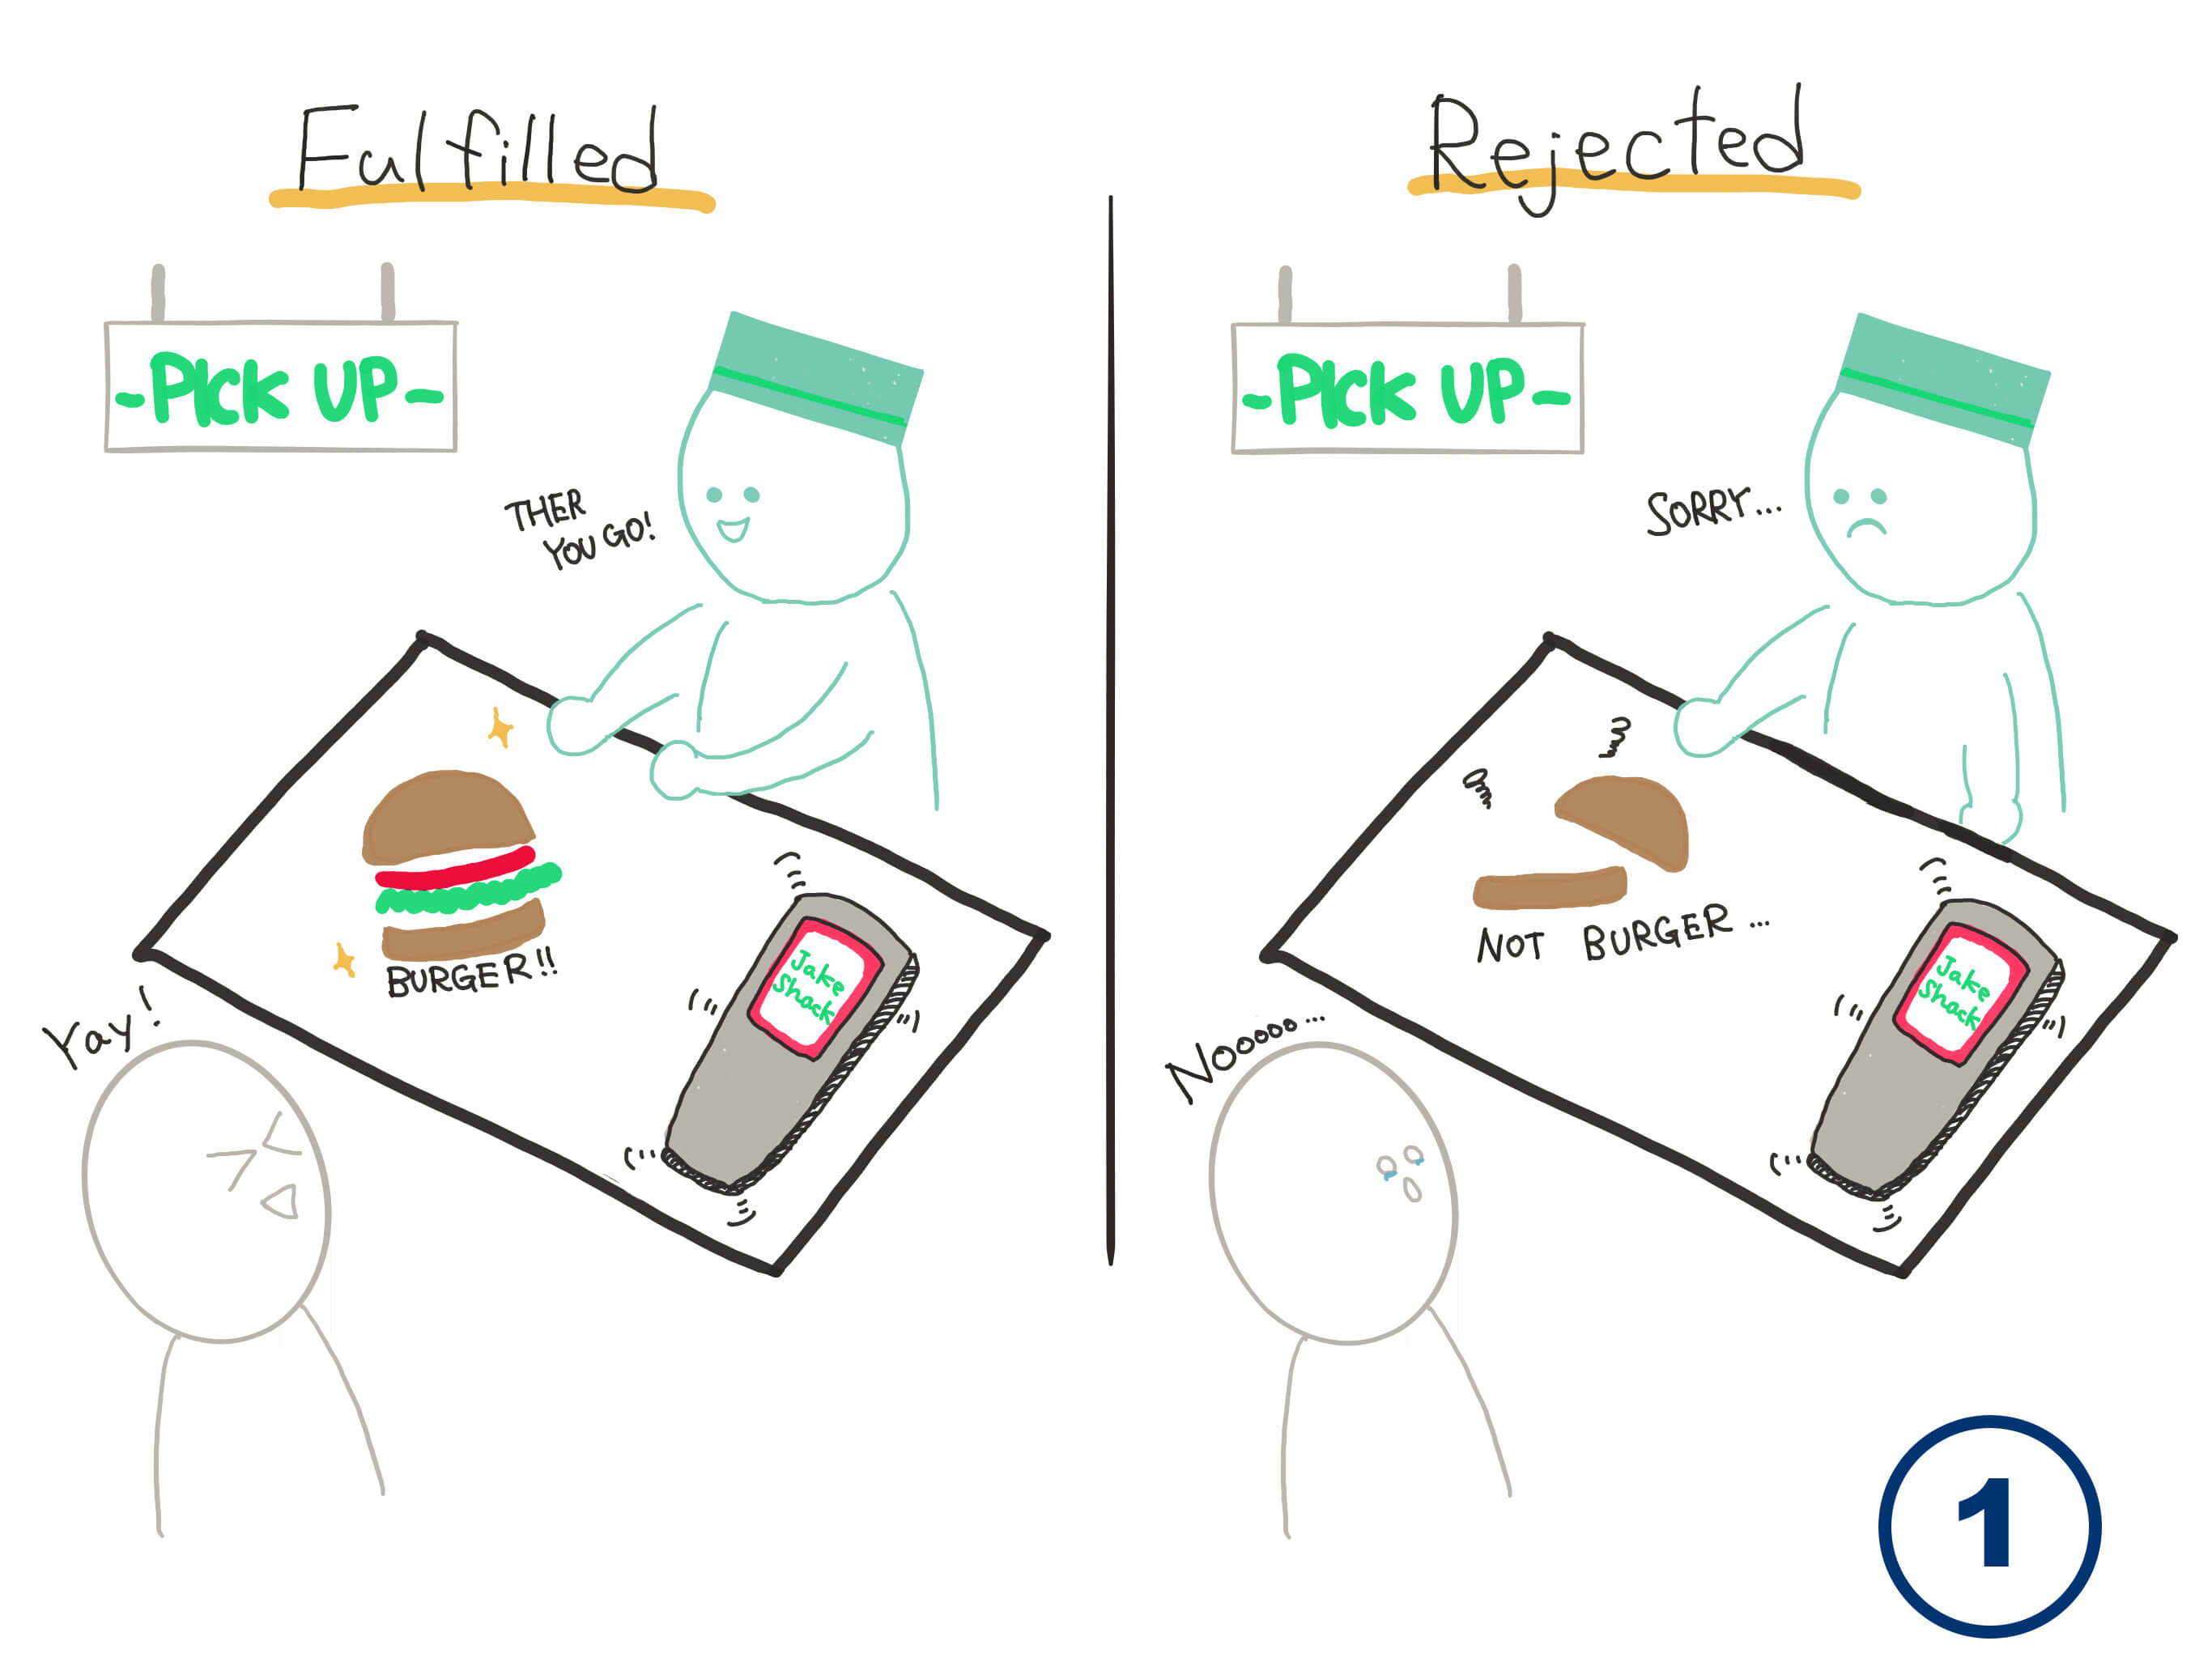 Fulfilled
-PICK UP-
THER
YOU GO!
BURGER!!
Jake
Shack
Yay!
Rejected
-PICK UP-
SORRY...
NOT BURGER...
Jake
Shack
Nooooo...
1